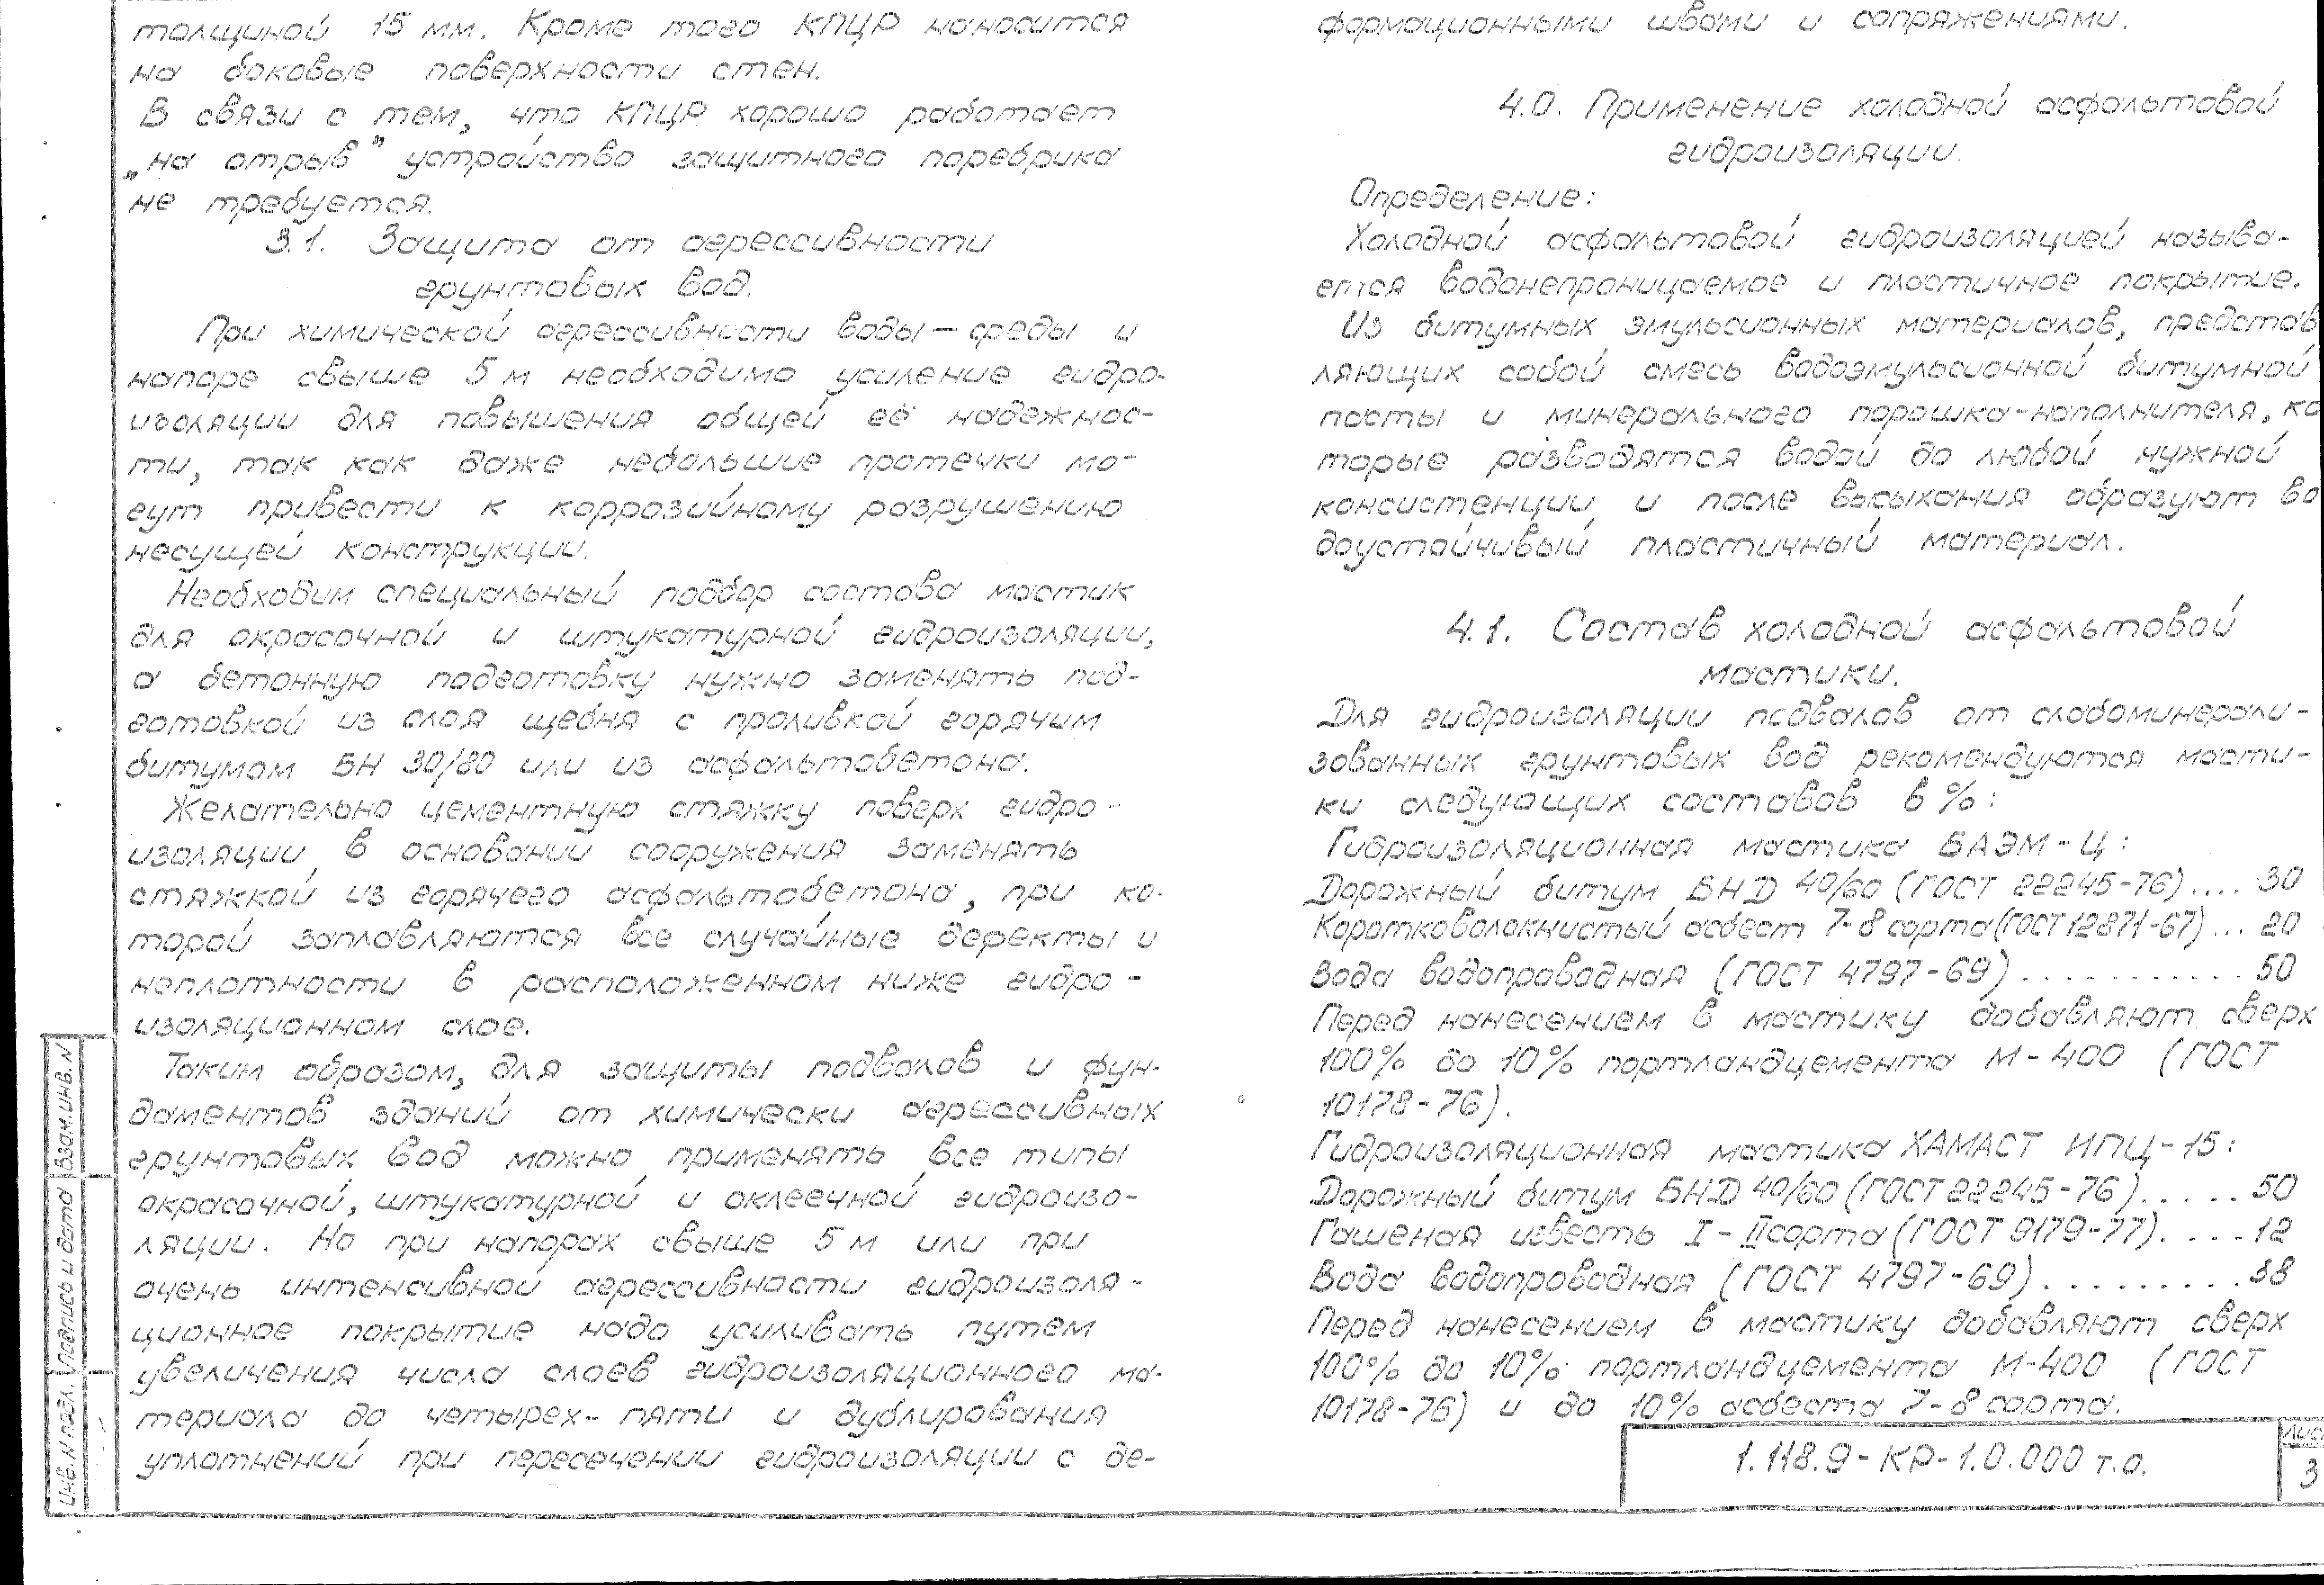 толщиной 15 мм. Кроме того КПЦР наносится
на боковые поверхности стен.
В связи с тем, что КПЦР хорошо работает
„на отрыв” устройство защитного поребрика
не требуется.
3.1. Защита от агрессивности
грунтовых вод.
При химической агрессивности воды — среды и
напоре свыше 5 м необходимо усиление гидро-
изоляции для повышения общей её надежнос-
ти, так как даже небольшие протечки мо-
гут привести к коррозийному разрушению
несущей конструкции.
Необходим специальный подбор состава мастик
для окрасочной и штукатурной гидроизоляции,
а бетонную подготовку нужно заменять под-
готовкой из слоя щебня с проливкой горячим
битумом БН 30/80 или из асфальтобетона.
Желательно цементную стяжку поверх гидро-
изоляции в основании сооружения заменять
стяжкой из горячего асфальтобетона, при ко-
торой заплавляются все случайные дефекты и
неплотности в расположенном ниже гидро-
изоляционном слое.
Таким образом, для защиты подвалов и фун-
даментов зданий от химически агрессивных
грунтовых вод можно применять все типы
окрасочной, штукатурной и оклеечной гидроизо-
ляции. Но при напорах свыше 5 м или при
очень интенсивной агрессивности гидроизоля-
ционное покрытие надо усиливать путем
увеличения числа слоев гидроизоляционного ма-
териала до четырех-пяти и дублирования
уплотнений при пересечении гидроизоляции с де-
формационными швами и сопряжениями.
4.0. Применение холодной асфальтовой
гидроизоляции.
Определение:
Холодной асфальтовой гидроизоляцией называ-
ется водонепроницаемое и пластичное покрытие.
Из битумных эмульсионных материалов, представ
ляющих собой смесь водоэмульсионной битумной
пасты и минерального порошка-наполнителя, ко
торые разводятся водой до любой нужной
консистенции и после высыхания образуют во
доустойчивый пластичный материал.
4.1. Состав холодной асфальтовой
мастики.
Для гидроизоляции подвалов от слабоминерали-
зованных грунтовых вод рекомендуются масти-
ки следующих составов в %:
Гидроизоляционная мастика БАЭМ-Ц:
Дорожный битум БНД 40/60 (ГОСТ 22245-76).... 30
Коротковолокнистый асбест 7-8 сорта (ГОСТ 12871-67)... 20
Вода водопроводная (ГОСТ 4797-69) .......... 50
Перед нанесением в мастику добавляют сверх
100% до 10% портландцемента М-400 (ГОСТ
10178-76).
Гидроизоляционная мастика ХАМАСТ ИПЦ-15:
Дорожный битум БНД 40/60 (ГОСТ 22245-76)..... 50
Гашеная известь I-II сорта (ГОСТ 9179-77).... 12
Вода водопроводная (ГОСТ 4797-69)......... 38
Перед нанесением в мастику добавляют сверх
100% до 10% портландцемента М-400 (ГОСТ
10178-76) и до 10% асбеста 7-8 сорта.
1.118.9-КР-1.0.000 т.о.
лис
3
Взам.инв.N
Подпись и дата
Инв.N подл.